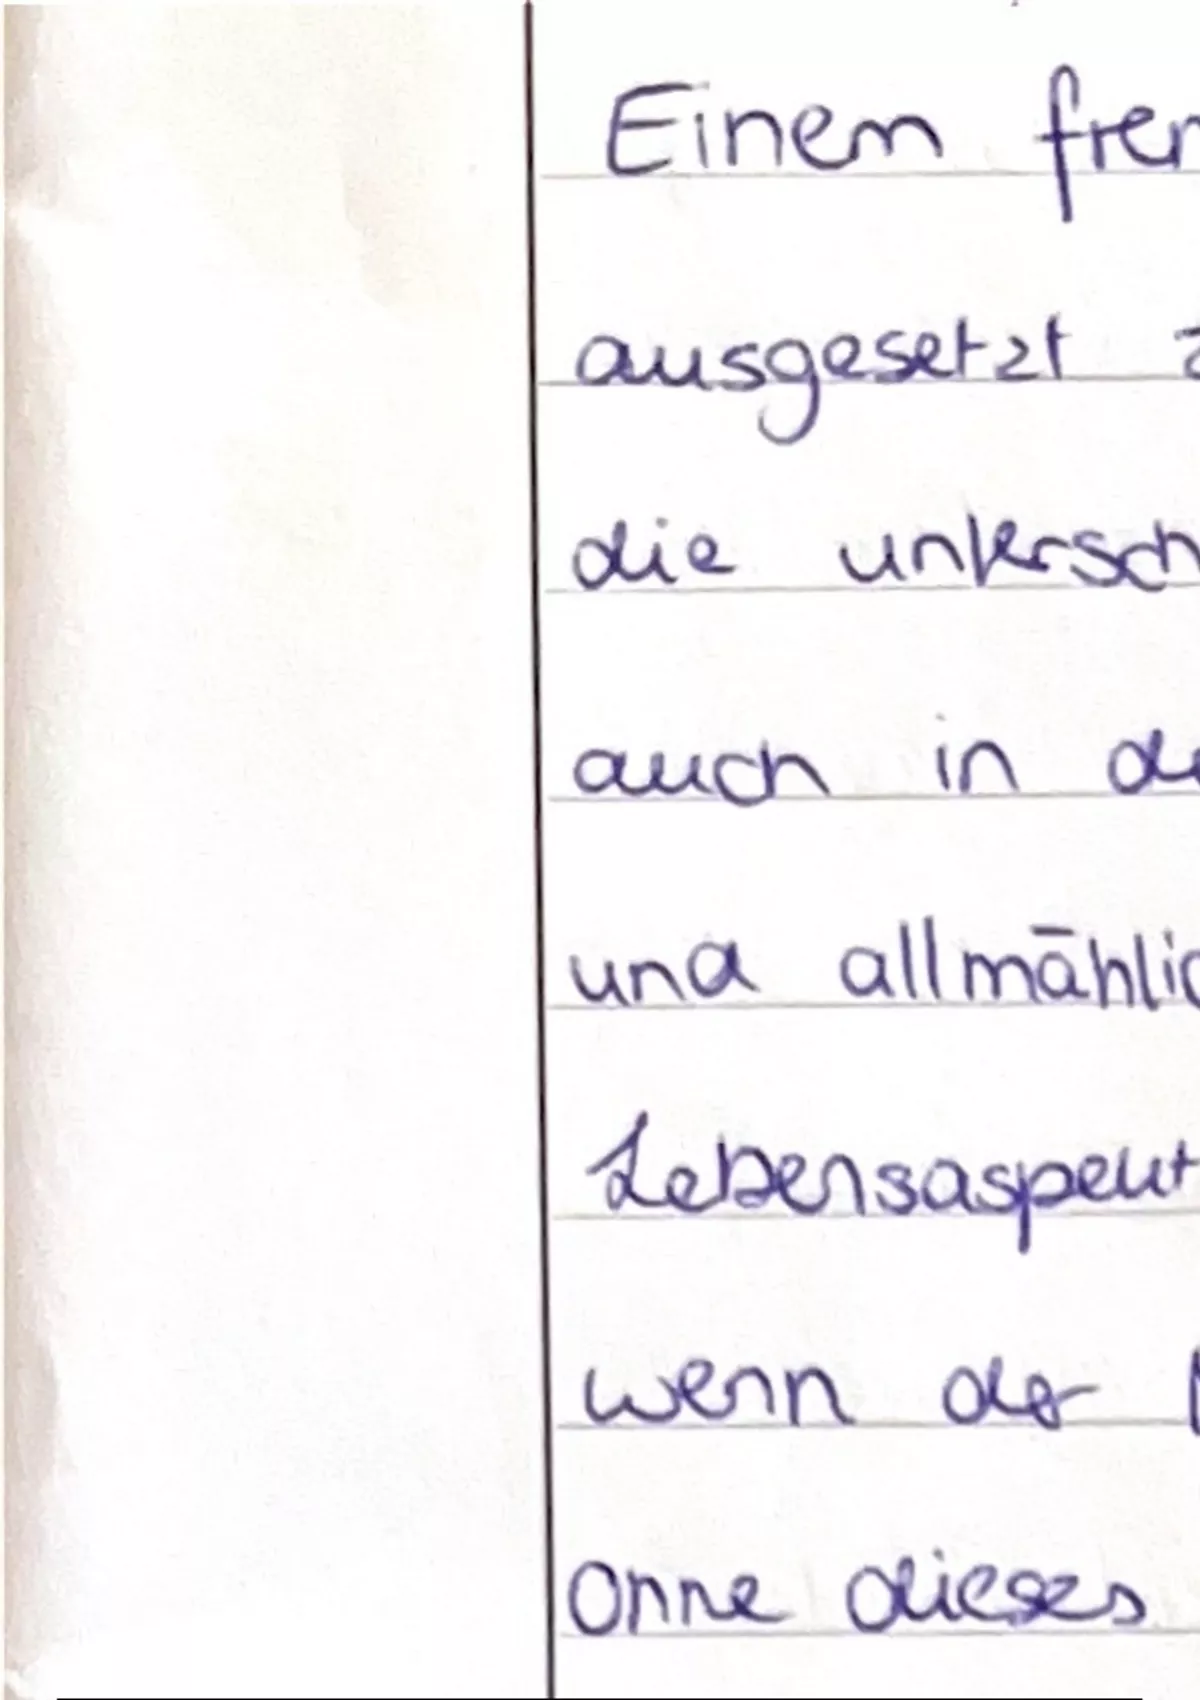 Einem frem
ausgesetzt z
die untersch
auch in de
und allmählic
Lebensaspekt
wenn der
ohne dieses